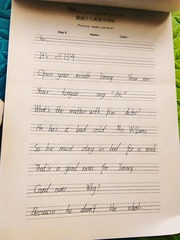 Practice makes perfect!
Day: Name: Class:
It's ¥1754
Open your mouth Jimmy Show me
Your tongue say "Ah"
What's the matter with him doctor?
He has a bad cold Mrs Williams
So he must stay in bed for a week
That's a good news for Jimmy
Good news Why?
Because he doesn't like school